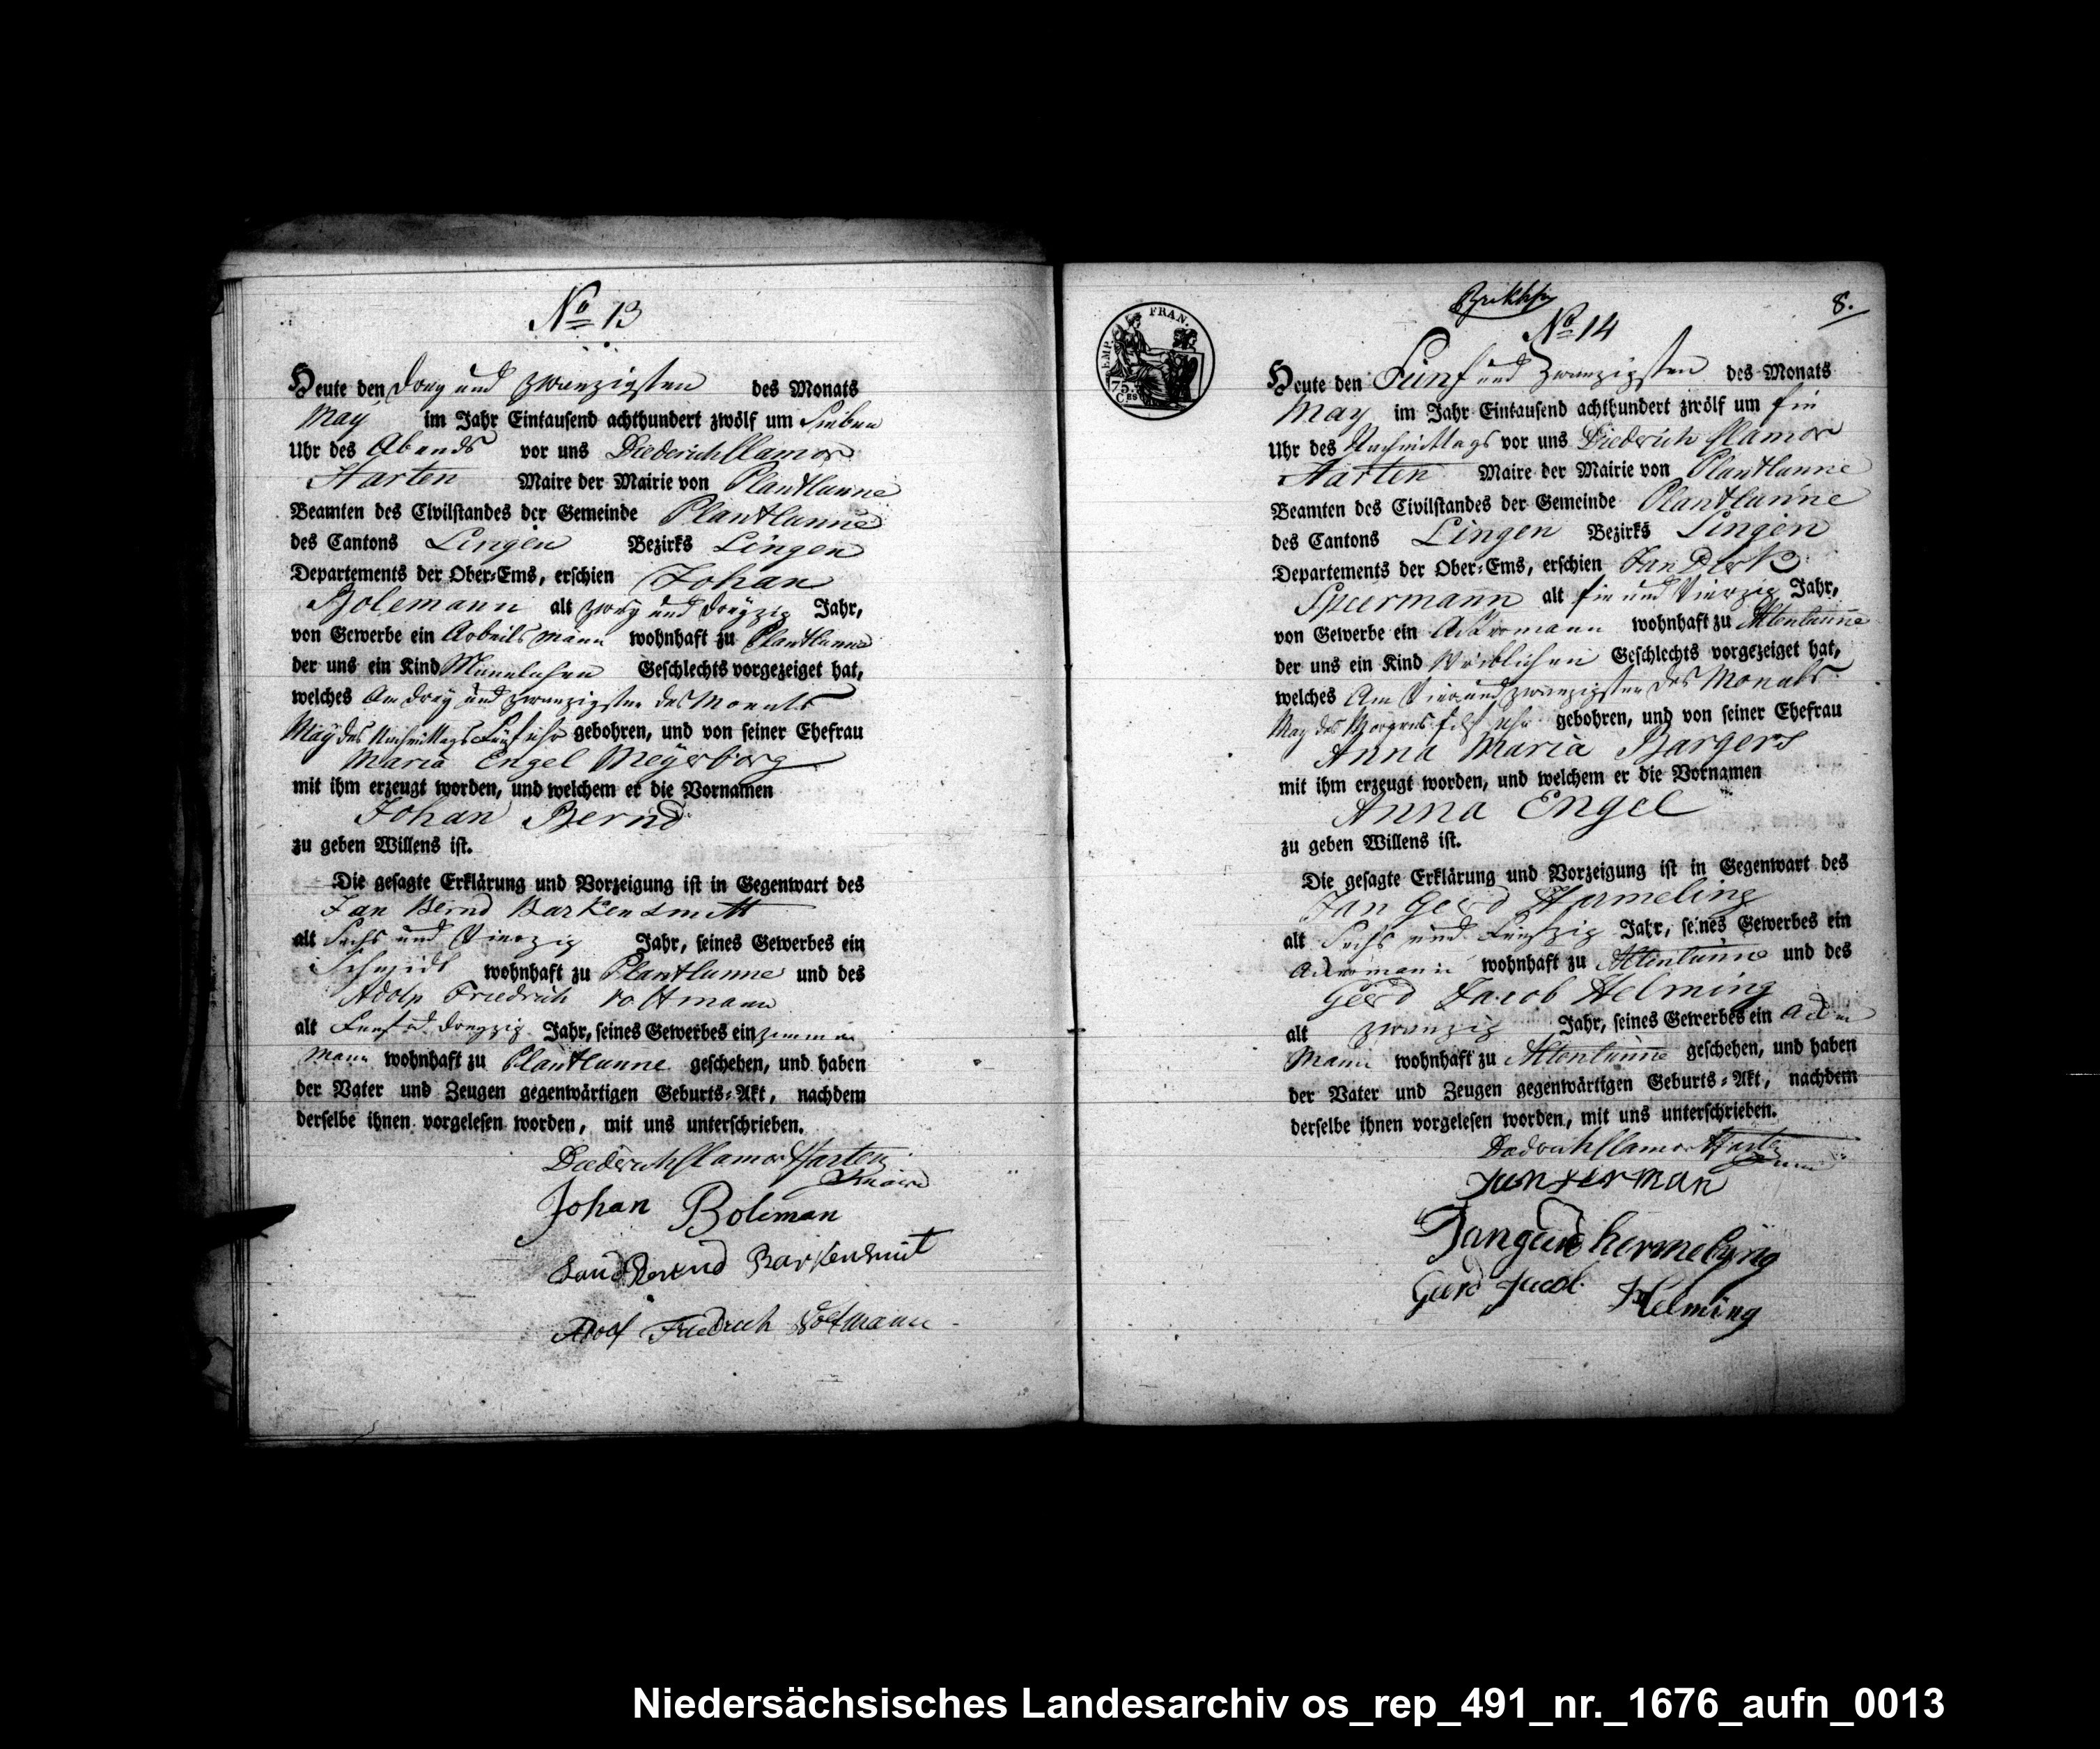 No 13
Heute den drey und zwanzigsten des Monats
May im Jahr Eintausend achthundert zwölf um Sieben
Uhr des Abends vor uns Diederich Clamor
Harten Maire der Mairie von Plantlünne
Beamten des Civilstandes der Gemeinde Plantlünne
des Cantons Lingen Bezirks Lingen
Departements der Ober-Ems, erschien Johan
Bolemann alt zwey und dreyzig Jahr,
von Gewerbe ein Arbeitsmann wohnhaft zu Plantlünne
der uns ein Kind Mannlichen Geschlechts vorgezeiget hat,
welches Am drey und zwanzigsten des Monats
May des Nachmittags Fünf uhr gebohren, und von seiner Ehefrau
Maria Engel Meyerborg
mit ihm erzeugt worden, und welchem er die Vornamen
Johan Bernd
zu geben Willens ist.
Die gesagte Erklärung und Vorzeigung ist in Gegenwart des
Jan Bernd Barkensmitt
alt Sechs und Vierzig Jahr, seines Gewerbes ein
Schmidt wohnhaft zu Plantlünne und des
Adolp Friedrich Voltmann
alt Funf u. dreyzig Jahr, seines Gewerbes ein Zimmer
Mann wohnhaft zu Plantlunne geschehen, und haben
der Vater und Zeugen gegenwärtigen Geburts-Akt, nachdem
derselbe ihnen vorgelesen worden, mit uns unterschrieben.
Diederich Clamor Harten
Maire
Johan Boleman
Bernd Barkensmit
Adolf Friedrich Voltmann
8.
No 14
EMP. FRAN.
75.
CES
Heute den Fünf und Zwanzigsten des Monats
May im Jahr Eintausend achthundert zwölf um
Uhr des Nachmittags vor uns Diederich Clamor
Harten Maire der Mairie von Plantlünne
Beamten des Civilstandes der Gemeinde Plantlünne
des Cantons Lingen Bezirks Lingen
Departements der Ober-Ems, erschien Jan Derk
Speermann alt ein und Vierzig Jahr,
von Gewerbe ein Ackermann wohnhaft zu Altenlünne
der uns ein Kind Weiblichen Geschlechts vorgezeiget hat,
welches Am Vier und zwanzigsten des Monats
May des Morgens Uhr gebohren, und von seiner Ehefrau
Anna Maria Bargers
mit ihm erzeugt worden, und welchem er die Vornamen
Anna Engel
zu geben Willens ist.
Die gesagte Erklärung und Vorzeigung ist in Gegenwart des
Jan Gerd Harmeling
alt Sechs und Funfzig Jahr, seines Gewerbes ein
Ackermann wohnhaft zu Altenlünne und des
Gerd Jacob Helming
alt zwanzig Jahr, seines Gewerbes ein Acker
Mann wohnhaft zu Altenlünne geschehen, und haben
der Vater und Zeugen gegenwärtigen Geburts-Akt, nachdem
derselbe ihnen vorgelesen worden, mit uns unterschrieben.
Diedrich Clamor Harten
Helming
Niedersächsisches Landesarchiv os_rep_491_nr._1676_aufn_0013